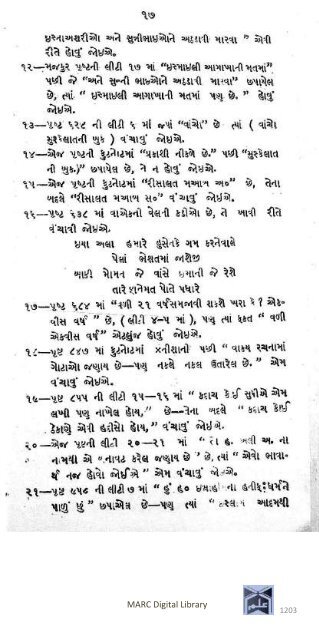 ૧૭
ઇસ્નાઅશરીઓ અને સુન્નીભાઇઓને અદાવતી મારવા " એવી
રીતે હોવું જોઇએ.
૧૨—મજકુર પૃષ્ટની લીટી ૧૭ માં "ઇસ્માઇલી આગાખાની મતમાં"
પછી જે "અને સુન્ની ભાઇઓને અદાવતી મારવા" છપાયેલ
છે, ત્યાં " ઇસ્માઇલી આગાખાની મતમાં પણ છે. " હોવું
જોઇએ.
૧૩—પૃષ્ટ ૬૨૯ ની લીટી ૬ માં જ્યાં "વાંચો" છે ત્યાં ( વાંચો
મુશ્કેલાતની બુક ) વંચાવું જોઇએ.
૧૪—એજ પૃષ્ટની ફુટનોટમાં "પ્રકાશી નીકળે છે." પછી "મુશ્કેલાત
ની બુક)" છપાયેલ છે, તે ન હોવું જોઇએ.
૧૫—એજ પૃષ્ટની ફુટનોટમાં "રીસાલત મઆબ અ૦" છે, તેના
બદલે "રીસાલત મઆબ સ૦" વંચાવું જોઇએ.
૧૬—પૃષ્ટ ૬૩૮ માં વાએકનો બેલની કડીઓ છે, તે આવી રીતે
વંચાવી જોઇએ.
ઇયા અલા હમારે હુસેનકે ગમ કરનેવાલે
પેલાં ભેશતમાં જાશેજી
બાકી મોમન જે વાંસે ઇમાની જે રેશે
તારેશનેમત પોતે પધારે
૧૭—પૃષ્ટ ૬૮૪ માં "વળી ૨૧ વર્ષસમજાવી રાકશે ખરા કે? એક-
વીસ વર્ષ " છે, ( લીટી ૪–૫ માં ), પણ ત્યાં ફકત " વળી
એકવીસ વર્ષ" એટલુંજ હોવું જોઇએ.
૧૮—પૃષ્ટ ૮૪૭ માં ફુટનોટમાં મનીસાનો પછી " વાક્ય રચનામાં
ગોટાળો જણાય છે—પણ નકલે નકલ ઉતારેલ છે. " એમ
વંચાવું જોઇએ.
૧૯—પૃષ્ટ ૮૫૫ ની લીટી ૧૫—૧૬ માં " કદાચ કેઇ સુફીએ એમ
લખી પણ નાખેલ હોય, " છે—તેના બદલે " કદાચ કોઈ
ઠેકાણે એવી હદીસો હોય," વંચાવું જોઇએ.
૨૦—એજ પૃષ્ટની લીટી ૨૦—૨૧ માં " હ. અલી અ. ના
નામથી એ બનાવટ કરેલ જણાય છે " છે, ત્યાં " એવો ભાવા-
ર્થ નજ હોવો જોઈએ " એમ વંચાવું જોઇએ.
૨૧—પૃષ્ટ ૯૫૯ ની લીટી ૭ માં " હું હ૦ ઇસાહાકના હનીફ ધર્મને
પાળું છું " છપાએલ છે—પણ ત્યાં " ઇસ્લામ આદમથી
MARC Digital Library
1203